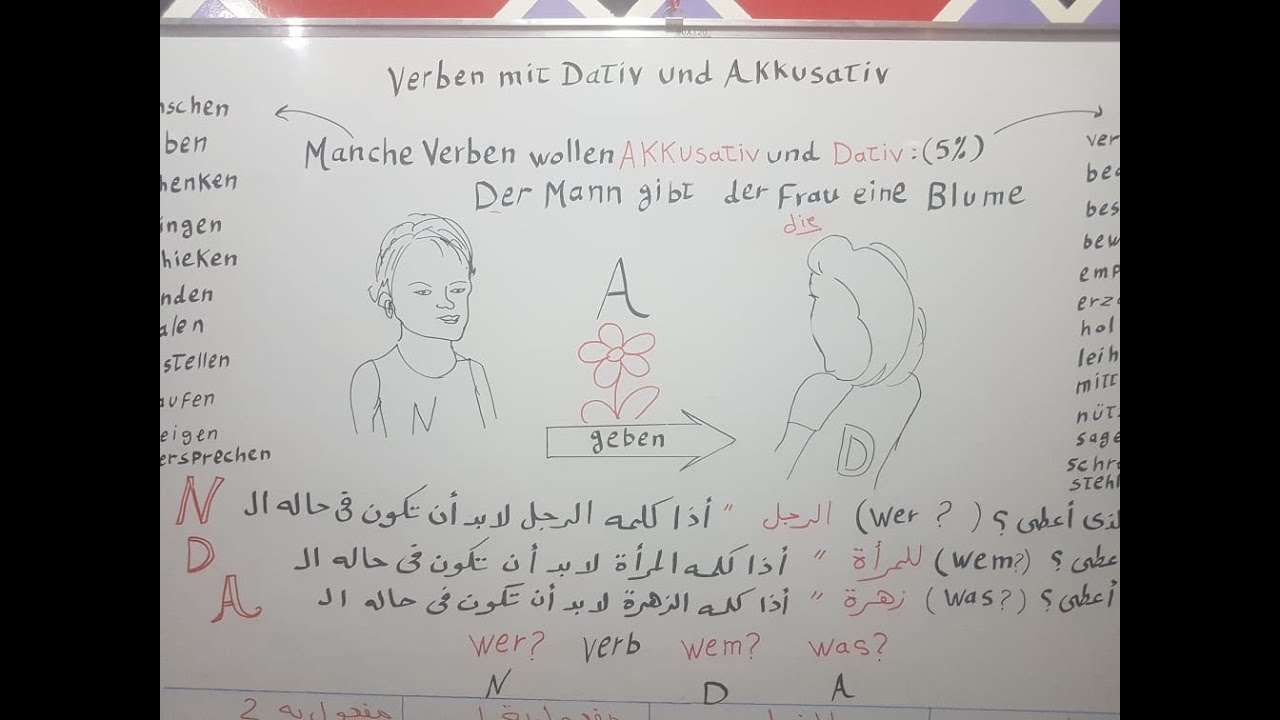 Verben mit Dativ und Akkusativ
Manche Verben wollen Akkusativ und Dativ : (5%)
Der Mann gibt der Frau eine Blume
die
nschen
ben
henken
ingen
hieken
nden
alen
stellen
aufen
eigen
ersprechen
A
N
geben
D
ver
bea
bes
bew
emp
erz
hol
leih
mitt
nüt
sage
schr
stehl
لذى أعطى ؟ (wer ? ) الرجل " أذا كلمه الرجل لابد أن تكون فى حاله ال N
عطى ؟ (wem?) للمرأة " أذا كلمه المرأة لابد أن تكون فى حاله ال D
أعطى ؟ (was?) زهرة " أذا كلمه الزهرة لابد أن تكون فى حاله ال A
wer? verb wem? was?
N D A
مفعول به 1 مفعول به 2